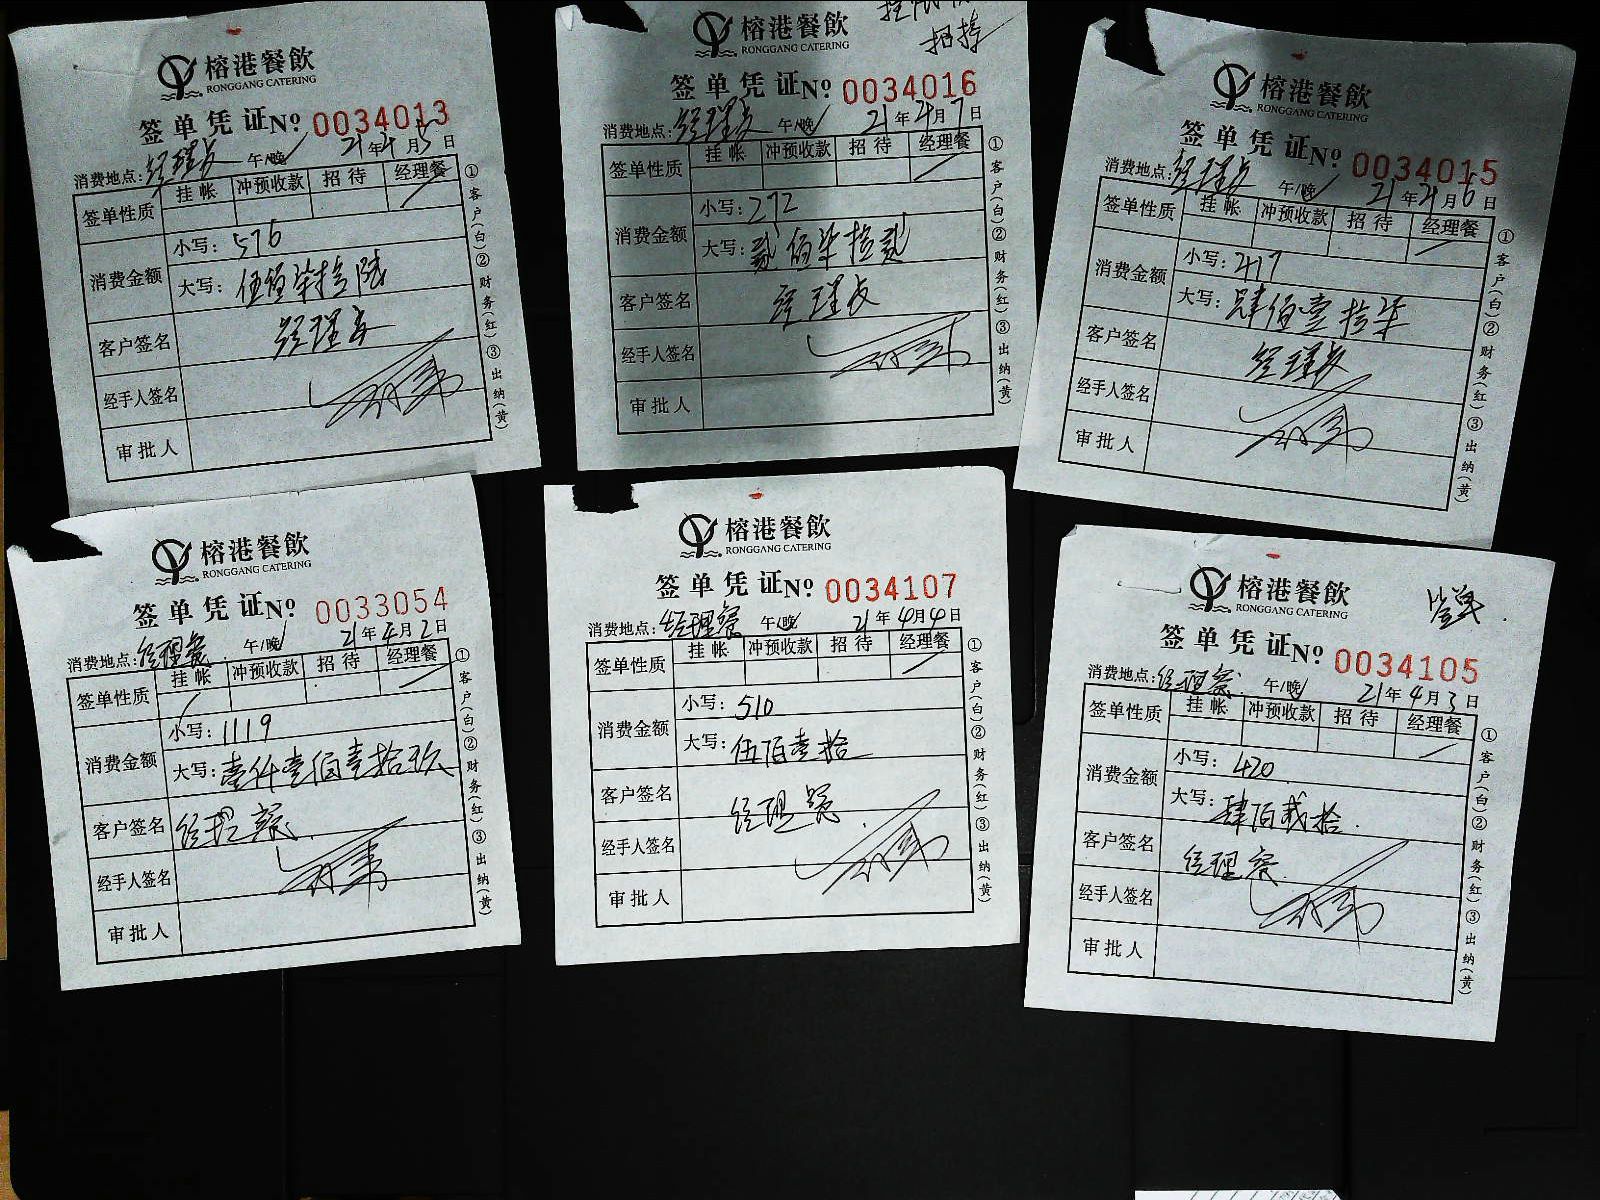 榕港餐飲
RONGGANG CATERING
签单凭证 No 0034013
消费地点: 午/晚 21年4月5日
签单性质 挂帐 冲预收款 招待 经理餐
消费金额 小写: 576
大写: 伍佰柒拾陆
客户签名
经手人签名
审批人
①客户(白)②财务(红)③出纳(黄)
招待
榕港餐飲
RONGGANG CATERING
签单凭证 No 0034016
消费地点: 午/晚 21年4月7日
签单性质 挂帐 冲预收款 招待 经理餐
消费金额 小写: 272
大写: 贰佰柒拾贰
客户签名
经手人签名
审批人
①客户(白)②财务(红)③出纳(黄)
榕港餐飲
RONGGANG CATERING
签单凭证 No 0034015
消费地点: 午/晚 21年4月6日
签单性质 挂帐 冲预收款 招待 经理餐
消费金额 小写: 417
大写: 肆佰壹拾柒
客户签名
经手人签名
审批人
①客户(白)②财务(红)③出纳(黄)
榕港餐飲
RONGGANG CATERING
签单凭证 No 0033054
消费地点: 经理餐 午/晚 21年4月2日
签单性质 挂帐 冲预收款 招待 经理餐
消费金额 小写: 1119
大写: 壹仟壹佰壹拾玖
客户签名 经理餐
经手人签名
审批人
①客户(白)②财务(红)③出纳(黄)
榕港餐飲
RONGGANG CATERING
签单凭证 No 0034107
消费地点: 经理餐 午/晚 21年4月4日
签单性质 挂帐 冲预收款 招待 经理餐
消费金额 小写: 510
大写: 伍佰壹拾
客户签名 经理餐
经手人签名
审批人
①客户(白)②财务(红)③出纳(黄)
榕港餐飲
RONGGANG CATERING
签单凭证 No 0034105
消费地点: 经理餐 午/晚 21年4月3日
签单性质 挂帐 冲预收款 招待 经理餐
消费金额 小写: 420
大写: 肆佰贰拾
客户签名 经理餐
经手人签名
审批人
①客户(白)②财务(红)③出纳(黄)